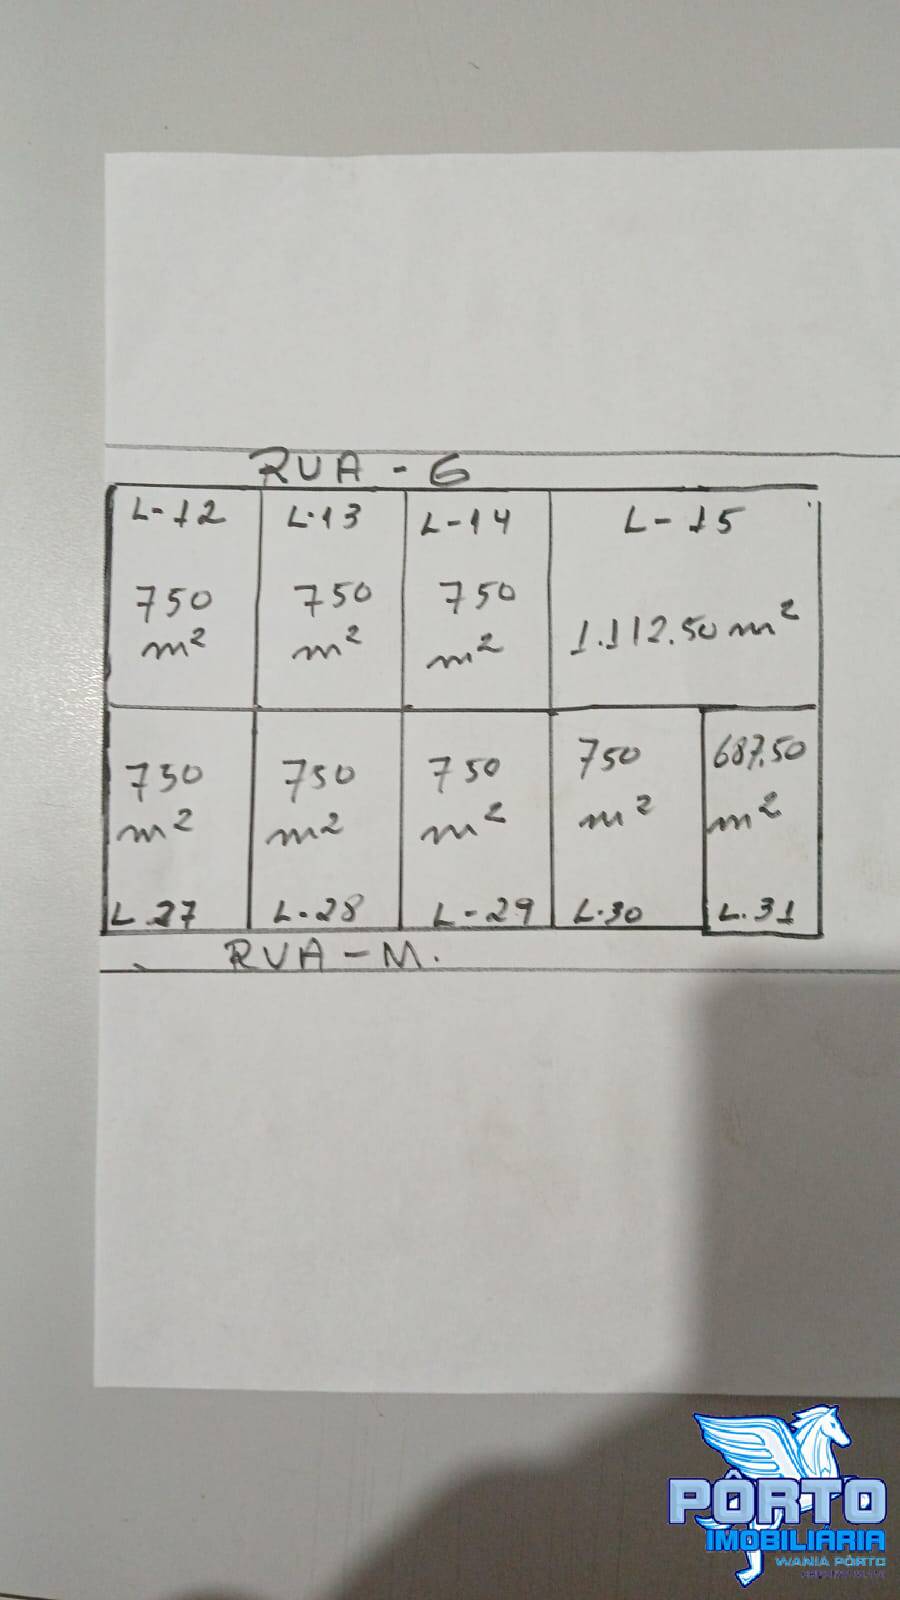 RUA - G
L-12
750
m²
L.13
750
m²
L-14
750
m²
L-15
1.112.50 m²
750
m²
L.27
750
m²
L.28
750
m²
L-29
750
m²
L.30
687.50
m²
L.31
RUA - M.
PÔRTO
IMOBILIÁRIA
WANIA PÔRTO